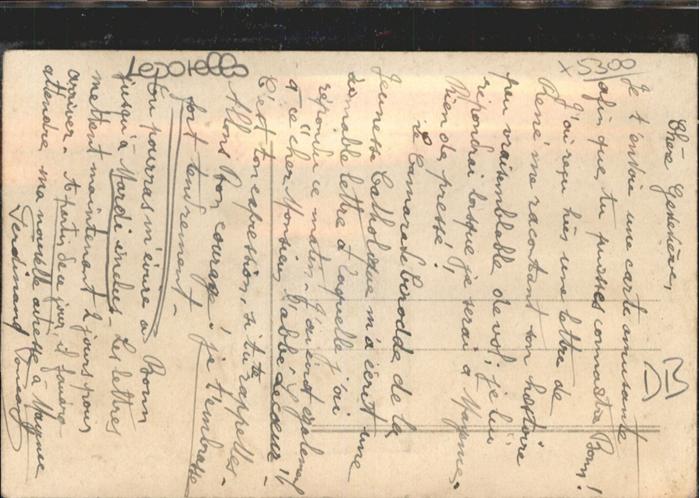 Chère Geneviève,
Je t'envoie une carte amusante
afin que tu puisses connaître Bonn!
J'ai reçu hier une lettre de
René me racontant son histoire
peu vraisemblable de vol; je lui
répondrai lorsque je serai à Mayence.
Rien de pressé!
le Camarade de la
Jeunesse Catholique m'a écrit une
aimable lettre à laquelle j'ai
répondu ce matin. J'ai écrit également
à "ce cher Monsieur l'abbé
C'est ton expression, si tu te rappelles.
Allons bon courage! je t'embrasse
fort tendrement.
Tu pourras m'écrire à Bonn
jusqu'à Mardi inclus. Les lettres
mettent maintenant 2 jours pour
arriver. A partir de ce jour, il faudra
attendre ma nouvelle adresse à Mayence
Ferdinand
Leporello
x5308